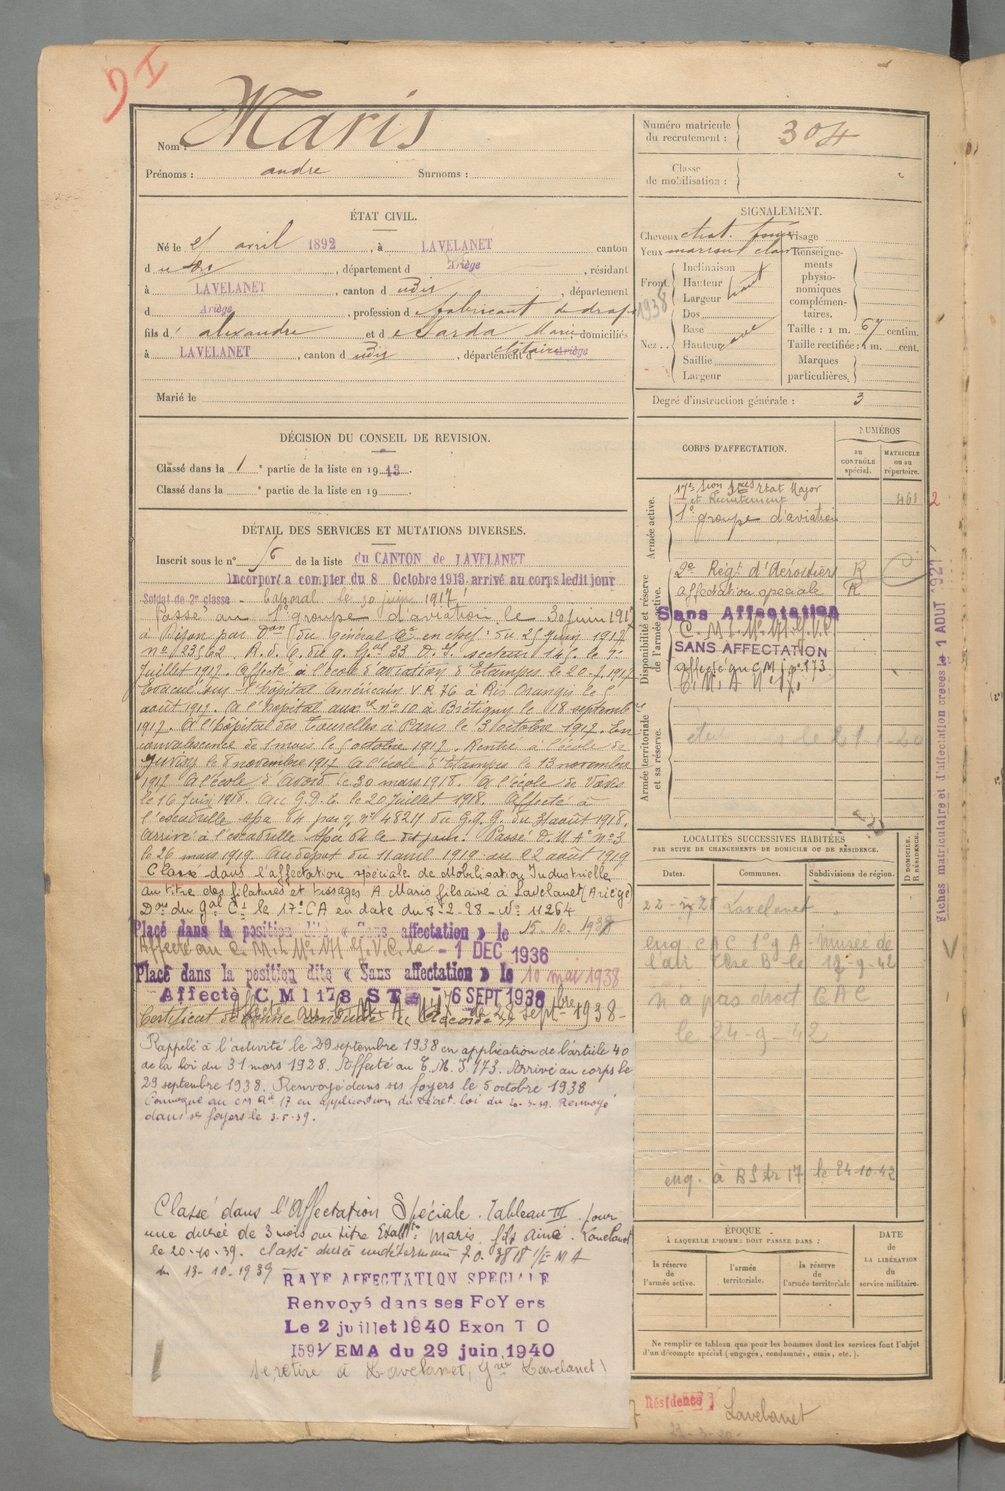 DI
Nom : Maris
Prénoms : andre Surnoms :
ÉTAT CIVIL.
Né le 21 avril 1892, à LAVELANET canton
d udit, département d Ariège, résidant
à LAVELANET, canton d udit, département
d Ariège, profession d e fabricant de draps
fils d' alexandre et d e Sarda Marie domiciliés
à LAVELANET, canton d udit, département Ariège
Marié le
DÉCISION DU CONSEIL DE REVISION.
Classé dans la 1e partie de la liste en 1913.
Classé dans la e partie de la liste en 19
DÉTAIL DES SERVICES ET MUTATIONS DIVERSES.
Inscrit sous le n° 56 de la liste du CANTON de LAVELANET
Incorporé a compter du 8 Octobre 1913 arrivé au corps ledit jour
Soldat de 2e classe - Caporal le 30 juin 1917
Passé au 1er groupe d'aviation le 30 juin 1917
à Dijon par Don du général Ct en chef du 25 juin 1917
n° 23562
juillet 1917. Affecté à l'école d'aviation d'Etampes le 20-7-1917
Evacué sur l'hôpital Américain V.R. 76 à Ris Orangis le
août 1917. A l'hôpital aux. n° 10 à Brétigny le 18 septembre
1917. A l'hôpital des Tourelles à Paris le 3 octobre 1917. En
convalescence de 1 mois le 5 octobre 1917. Rentré à l'école de
Juvisy le 8 novembre 1917 A l'école d'Etampes le 13 novembre
1917 A l'école d'Avord le 30 mars 1918. A l'école de
le 16 Juin 1918. Au G.D.E. le 20 Juillet 1918. Affecté à
l'escadrille spa 84 par n° 48211 du G.Q.G. du août 1918.
Arrivé à l'escadrille Spa 84 le dit jour. Passé D M A n° 3
le 26 mars 1919. Au dépôt du 11 avril 1919 au 22 août 1919
Classé dans l'affectation spéciale de Mobilisation Industrielle
au titre des filatures et tissages A. Maris fils ainé à Lavelanet (Ariège)
Don du Gal Ct le 17e CA en date du 8-2-28 - N° 11264
Placé dans la position dite « Sans affectation » le 15-10-1938
Affecté au C. M. I. - 1 DEC 1936
Placé dans la position dite « Sans affectation » le 10 mai 1938
Affecté C M I 178 ST - 6 SEPT 1938
28 septbre 1938-
Rappelé à l'activité le 29 septembre 1938 en application de l'article 40
de la loi du 31 mars 1928. Affecté au C.M.I. 173. Arrivé au corps le
29 septembre 1938. Renvoyé dans ses foyers le 5 octobre 1938
Convoqué au 17 en application du Décret-loi du 20-3-39. Renvoyé
dans ses foyers le 3-5-39.
Classé dans l'Affectation Spéciale. Tableau III pour
une durée de 3 mois au titre Etabts Maris fils Ainé. Lavelanet
le 20-10-39. classé durée indéterminée
du 13-10-1939
RAYE AFFECTATION SPECIALE
Renvoyé dans ses FoYers
Le 2 juillet 1940 Exon T O
1591/EMA du 29 juin 1940
Se retire à Lavelanet, Lavelanet
Numéro matricule du recrutement : 304
Classe de mobilisation :
SIGNALEMENT.
Cheveux chat. foncé Visage
Yeux marrons clairs
Front. Inclinaison
Hauteur haut
Largeur
Nez. Dos
Base
Hauteur
Saillie
Largeur
Renseignements physionomiques complémentaires.
Taille : 1 m. 67 centim.
Taille rectifiée : 1 m. cent.
Marques particulières.
1938
Degré d'instruction générale : 3
CORPS D'AFFECTATION.
NUMÉROS
AU CONTRÔLE spécial.
MATRICULE ou au répertoire.
Armée active.
17e Sion Etat Major
et Recrutement 461 2
1er groupe d'aviation
Disponibilité et réserve de l'armée active.
2e Régt d'Aérostiers R
affectation spéciale R
Sans Affectation
SANS AFFECTATION
affecté au CMI n° 173
Armée territoriale et sa réserve.
Fiches matriculaire et d'affectation créées le 1 AOUT 1921
LOCALITÉS SUCCESSIVES HABITÉES
PAR SUITE DE CHANGEMENTS DE DOMICILE OU DE RÉSIDENCE.
Dates. Communes. Subdivisions de région.
D DOMICILE. R RÉSIDENCE.
Lavelanet
enq. CAC 1° g A - Musée de
l'air - le 17-9-42
n a pas droit CAC
le 24-9 42
enq. à BSAr 17 le 24-10-42
ÉPOQUE
À LAQUELLE L'HOMME DOIT PASSER DANS :
la réserve de l'armée active.
l'armée territoriale.
la réserve de l'armée territoriale
DATE de LA LIBÉRATION du service militaire.
Ne remplir ce tableau que pour les hommes dont les services font l'objet
d'un décompte spécial (engagés, condamnés, omis, etc.).
Résidence Lavelanet